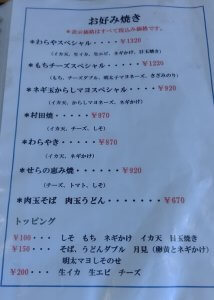 お好み焼き
*表示価格はすべて税込み価格です。
＊わらやスペシャル・・・・¥1320
（イカ天、生イカ、生エビ、ネギかけ、目玉焼き）
＊もちチーズスペシャル・・・・¥1220
（もち、チーズダブル、明太子マヨネーズ、きざみのり）
＊ネギ玉からしマヨスペシャル・・・¥920
（イカ天、からしマヨネーズ、ネギかけ）
＊村田焼・・・・¥970
（イカ天、チーズ、しそ）
＊わらやき・・・・¥870
（イカ天、ネギかけ）
＊せらの恵み焼・・・・・・¥920
（チーズ、トマト、しそ）
＊肉玉そば　肉玉うどん・・・・・・・¥670
トッピング
¥100・・・ しそ　もち　ネギかけ　イカ天　目玉焼き
¥150・・・ そば、うどんダブル　月見（卵黄とネギかけ）
明太マヨしそのせ
¥200・・・ 生イカ　生エビ　チーズ